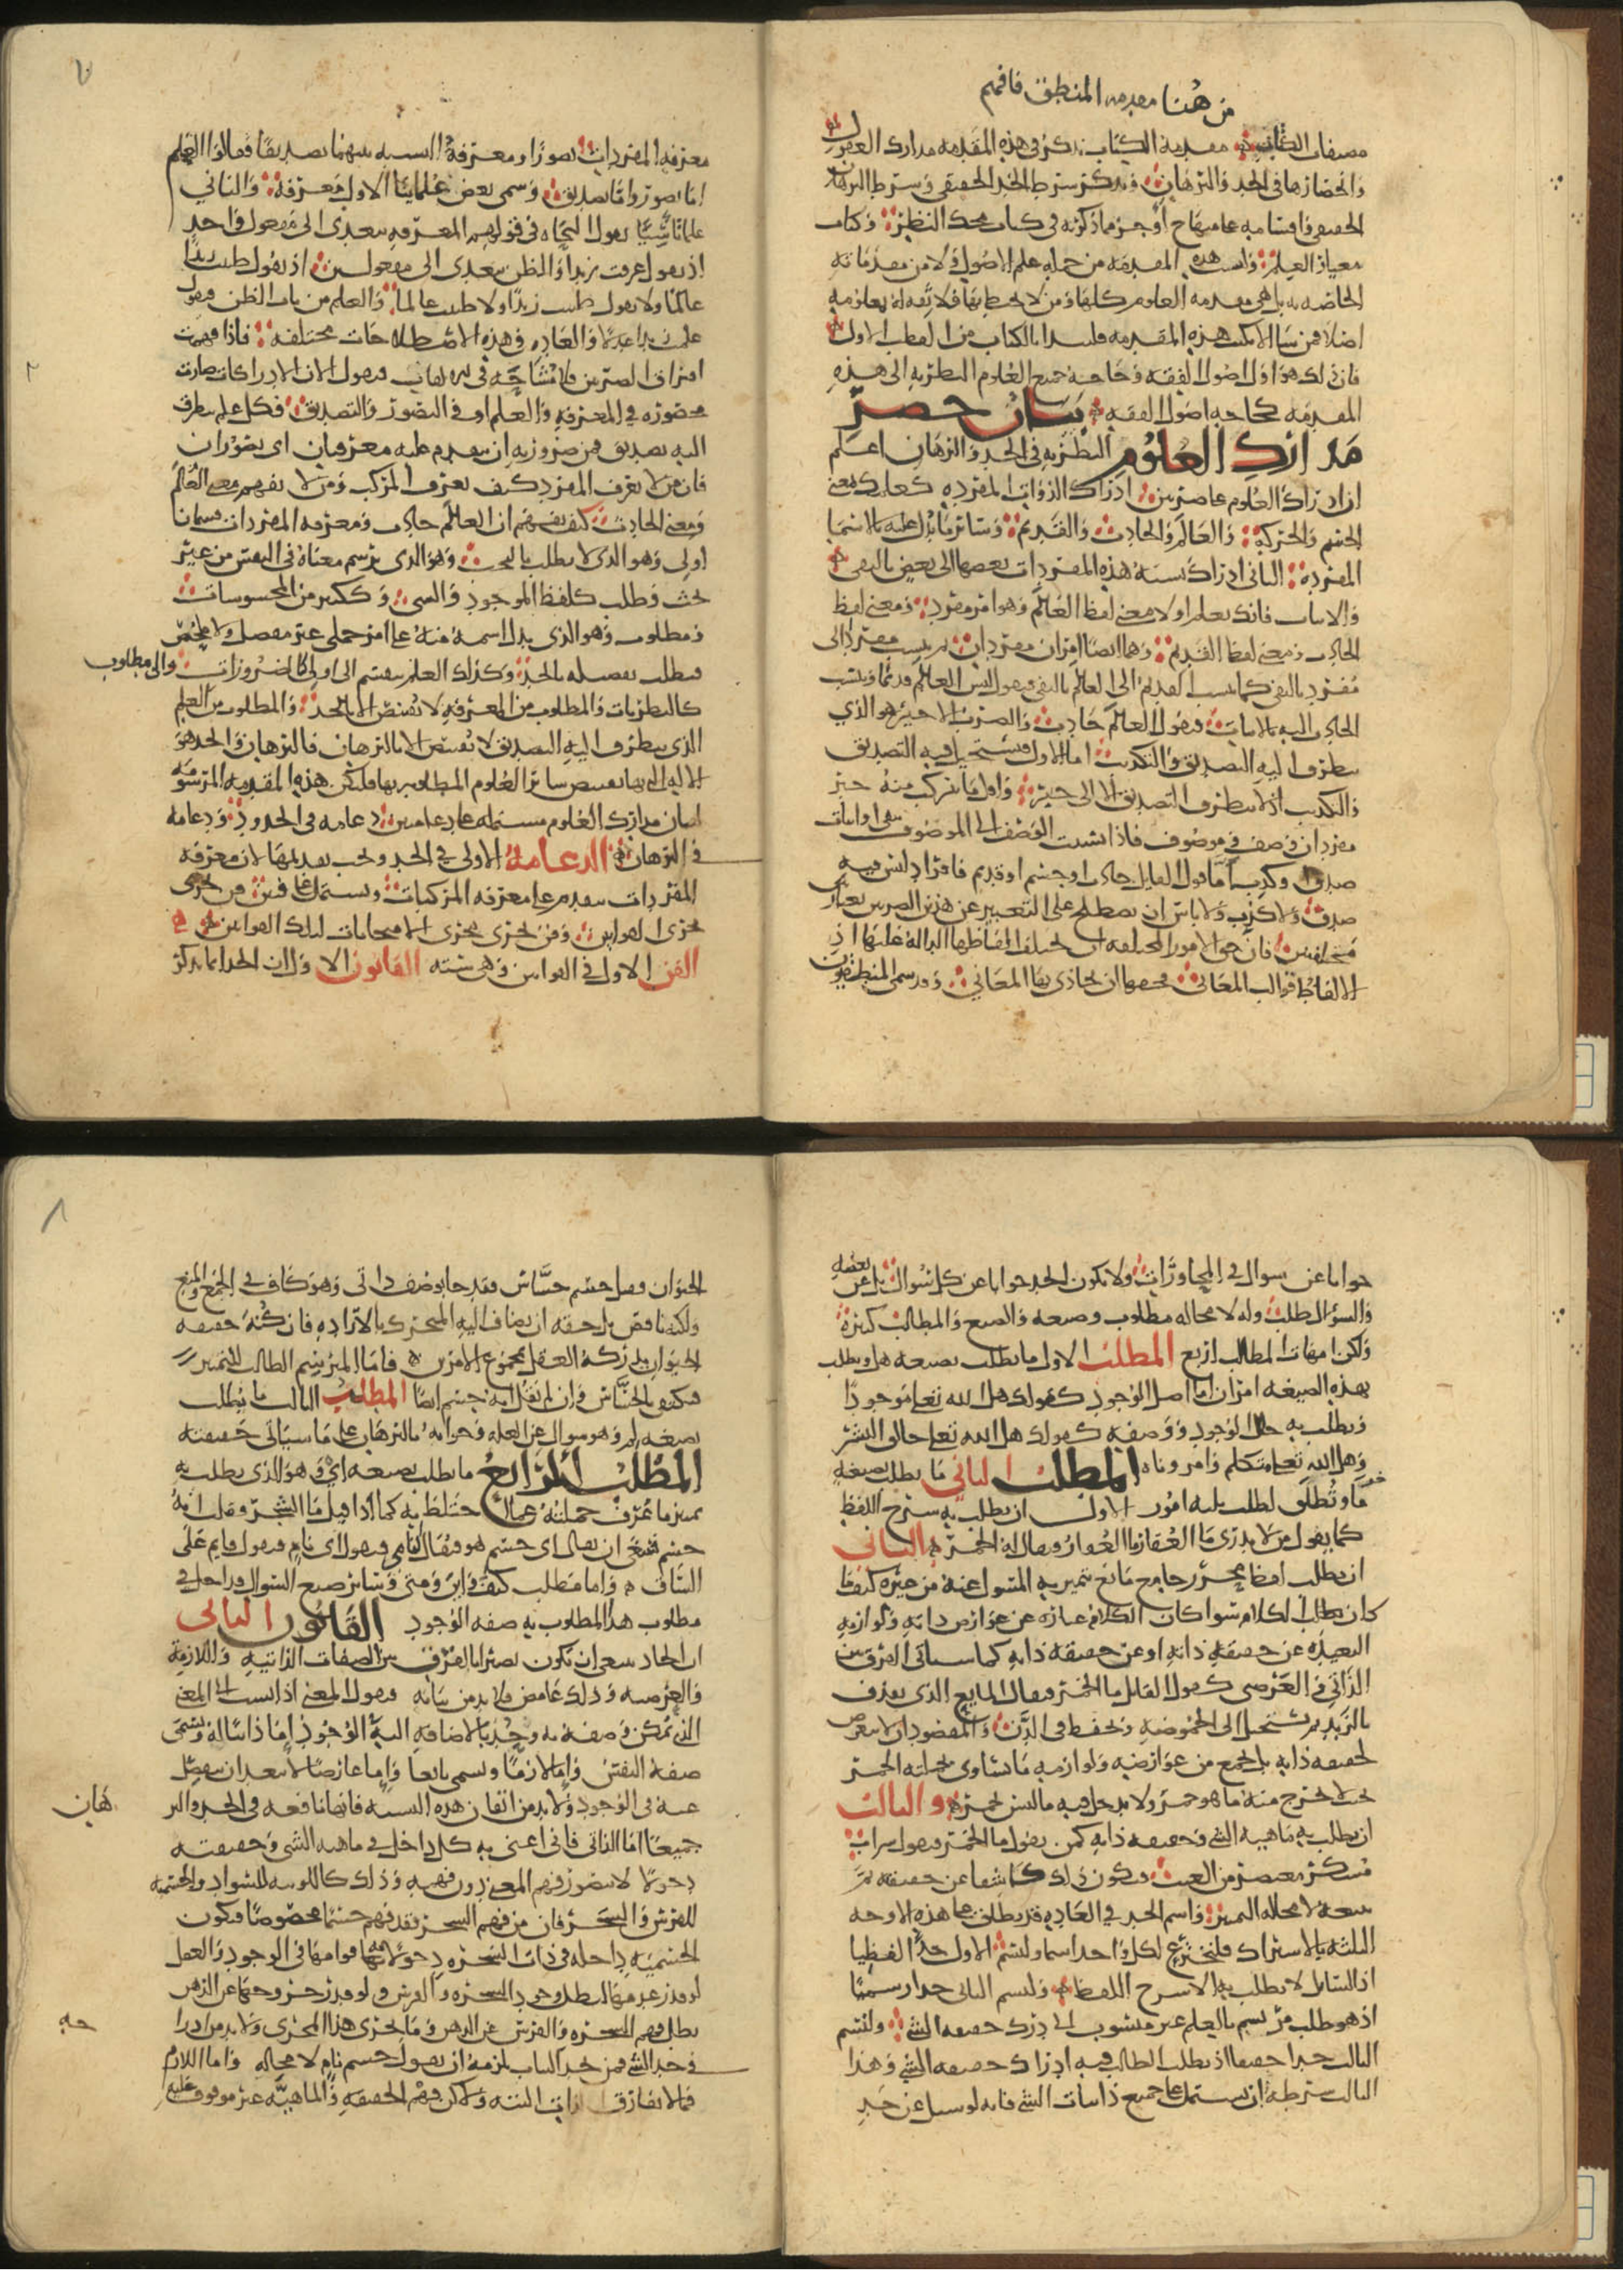 من هنا مقدمه المنطق فافهم
مقدمة الكتاب نذكر في هذه المقدمه مدارك العقول
وانحصارها في الحد والبرهان ونذكر شرط الحد الحقيقي وشرط البرهان
الحقيقي واقسامه على منهاج أوجز مما ذكرته في كتاب محك النظر وكتاب
معيار العلم وليست هذه المقدمه من جمله علم الاصول ولا من مقدماته
الخاصه به بل هي مقدمه العلوم كلها ومن لا يحيط بها فلا ثقه له بعلومه
اصلا فمن شا ان لا يكتب هذه المقدمه فليبدا بالكتاب من القطب الاول
فان ذلك هو اول اصول الفقه وحاجة جميع العلوم النظريه الى هذه
المقدمه كحاجه اصول الفقه بيان حصر
مدارك العلوم النظريه في الحد والبرهان اعلم
ان ادراك العلوم على ضربين ادراك الذوات المفرده كعلمك بمعنى
الجسم والحركه والعالم والحادث والقديم وسائر ما يدل عليه بالاسما
المفرده الثاني ادراك نسبة هذه المفردات بعضها الى بعض بالنفي
والاثبات فانك تعلم اولا معنى لفظ العالم وهو امر مفرد ومعنى لفظ
الحادث ومعنى لفظ القديم وهما ايضا امران مفردان ثم ينسب مفرد الى
مفرد بالنفي كما ينسب القديم الى العالم بالنفي فيقول ليس العالم قديما وينسب
الحادث اليه بالاثبات فيقول العالم حادث والضرب الاخير هو الذي
يتطرق اليه التصديق والتكذيب اما الاول فيستحيل فيه التصديق
والتكذيب اذ لا يتطرق التصديق الا الى خبر واول ما يتركب منه خبر
مفردان وصف وموصوف فاذا نسبت الوصف الى الموصوف بنفي او اثبات
صدق او كذب فاما قول القايل حادث او جسم او قديم فافراد ليس فيه
صدق ولا كذب ولا باس ان يصطلح على التعبير عن هذين الضربين بعبارتين
مختلفتين فان حق الامور المختلفه ان تختلف الفاظها الداله عليها اذ
الالفاظ قوالب المعاني فحقها ان تحاذى بها المعاني وقد سمى المنطقيون
معرفه المفردات تصورا ومعرفة النسبه بينهما تصديقا فقالوا العلم
اما تصور واما تصديق وسمى بعض علمائنا الاول معرفة والثاني
علما تأسيا بقول النحاه في قولهم المعرفه تتعدى الى مفعول واحد
اذ يقول عرفت زيدا والظن يتعدى الى مفعولين اذ يقول ظننت زيدا
عالما ولا يقول ظننت زيدا ولا ظننت عالما والعلم من باب الظن فيقول
علمت زيدا عدلا والعاده في هذه الاصطلاحات مختلفه فاذا فهمت
افتراق الضربين فلا مشاحه في الالقاب فيقول الان الادراكات صارت
محصوره في المعرفه والعلم او في التصور والتصديق فكل علم يتطرق
اليه تصديق فمن ضرورته ان يتقدم عليه معرفتان اي تصوران
فان من لا يعرف المفرد كيف يعرف المركب ومن لا يفهم معنى العالم
ومعنى الحادث كيف يفهم ان العالم حادث ومعرفه المفردات قسمان
اولى وهو الذي لا يطلب بالبحث وهو الذي يرتسم معناه في النفس من غير
بحث وطلب كلفظ الموجود والشي وككثير من المحسوسات
ومطلوب وهو الذي يدل اسمه منه على امر جملي غير مفصل ولا ملخص
فيطلب تفصيله بالحد وكذلك العلم ينقسم الى اولى كالضروريات والى مطلوب
كالنظريات والمطلوب من المعرفه لا يقتنص الا بالحد والمطلوب من العلم
الذي يتطرق اليه التصديق لا يقتنص الا بالبرهان فالبرهان والحد هو
الاله التي بها تقتنص سائر العلوم المطلوبه بها فلتكن هذه المقدمه المرسومه
لبيان مدارك العلوم مشتمله على دعامتين دعامه في الحدود ودعامه
في البرهان الدعامة الاولى في الحد ويجب تقديمها لان معرفه
المفردات تتقدم على معرفه المركبات وتشتمل على فنين فن يجرى
مجرى القوانين وفن يجرى مجرى الامتحانات لتلك القوانين
الفن الاول في القوانين وهي ستة القانون الاول ان الحد انما يذكر
جوابا عن سوال في المحاورات ولا يكون الحد جوابا عن كل سؤال بل عن بعضه
والسؤال طلب وله لا محاله مطلوب وصيغه والصيغ والمطالب كثيرة
ولكن امهات المطالب اربع المطلب الاول ما يطلب بصيغه هل ويطلب
بهذه الصيغه امران اما اصل الوجود كقولك هل الله تعلى موجودا
ويطلب به حال الوجود ووصفه كقولك هل الله تعلى خالق البشر
وهل الله تعلى متكلم وامر وناه المطلب الثاني ما يطلب بصيغة
ما وتطلق لطلب ثلثه امور الاول ان يطلب به شرح اللفظ
كما يقول من لا يدرى ما العقار ما العقار فيقال له الخمر الثاني
ان يطلب لفظ محرر جامع مانع يتميز به المسئول عنه من غيره كيفما
كان يطلب الكلام سوا كان الكلام عباره عن عوارض ذاته ولوازمه
البعيده عن حقيقه ذاته او عن حقيقه ذاته كما سياتي الفرق بين
الذاتي والعرضي كقول القايل ما الخمر فيقال المايع الذي يقذف
بالزبد ثم يستحيل الى الحموضه ويحفظ في الدن والمقصود ان لا يتعرض
لحقيقه ذاته بل يجمع من عوارضه ولوازمه ما يساوى بجملته الخمر
بحيث لا يخرج منه ما هو خمر ولا يدخل فيه ما ليس بخمر والثالث
ان يطلب به ماهيه الشي وحقيقه ذاته كمن يقول ما الخمر فيقول شراب
مسكر معتصر من العنب فيكون ذلك كاشفا عن حقيقته ثم
يتبعه لا محاله التميز واسم الحد في العاده قد يطلق على هذه الاوجه
الثلثه بالاشتراك فلنخترع لكل واحد اسما ولنسم الاول حدا لفظيا
اذ السائل لا يطلب به الا شرح اللفظ ولنسم الثاني حدا رسميا
اذ هو طلب مرتسم بالعلم غير متشوف الى درك حقيقه الشي ولنسم
الثالث حدا حقيقيا اذ يطلب الطالب فيه ادراك حقيقه الشي وهذا
الثالث شرطه ان يشتمل على جميع ذاتيات الشي فانه لو سيل عن حد
الحيوان فقيل جسم حساس فقد جا بوصف ذاتي وهو كاف في الجمع والمنع
ولكنه ناقص بل حقه ان يضاف اليه المتحرك بالارادة فان كنه حقيقه
الحيوان يدركه العقل بمجموع الامرين فاما المرتسم الطالب للتميز
فيكتفي بالحساس وان لم يقل انه جسم ايضا المطلب الثالث ما يطلب
بصيغه لم وهو سوال عن العله وجوابه بالبرهان على ما سياتي حقيقته
المطلب الرابع ما يطلب بصيغه أي وهو الذي يطلب به
تميز ما عرف جملته عما اختلط به كما اذا قيل ما الشجر وقيل انه
جسم فينبغي ان يقال اي جسم هو فيقال نامي فيقول اى نام فيقول قايم على
الساق واما مطلب كيف واين ومتى وسائر صيغ السؤال فداخل في
مطلوب هل المطلوب به صفه الوجود القانون الثاني
ان الحاد ينبغي ان يكون بصيرا بالفرق بين الصفات الذاتيه واللازمة
والعرضيه وذلك غامض فلا بد من بيانه فيقول المعنى اذا نسب الى المعنى
الذي يمكن وصفه به وجد بالاضافه اليه الوجود إما ذاتيا له ويسمى
صفة النفس وإما لازما ويسمى تابعا وإما عارضا لا يبعد ان ينفصل
عنه في الوجود ولا بد من اتقان هذه النسبه فانها نافعه في الحد والبر
هان
جميعا اما الذاتي فاني اعني به كل داخل في ماهيه الشي وحقيقته
دخولا لا يتصور فهم المعنى دون فهمه وذلك كاللونيه للسواد والجسميه
للفرس والشجر فان من فهم الشجر فقد فهم جسما مخصوصا فيكون
الجسميه داخله في ذات الشجره دخولا به قوامها في الوجود والعقل
لو قدر عدمها لبطل وجود الشجره والفرس ولو قدر خروجها عن الذهن
بطل فهم الشجره والفرس عن الذهن وما يجرى هذا المجرى ولا بد من ادرا
جه
في حد الشي فمن يحد النبات يلزمه ان يقول جسم نام لا محاله واما اللازم
فما لا يفارق الذات البتة ولكن فهم الحقيقه والماهيه غير موقوف عليه